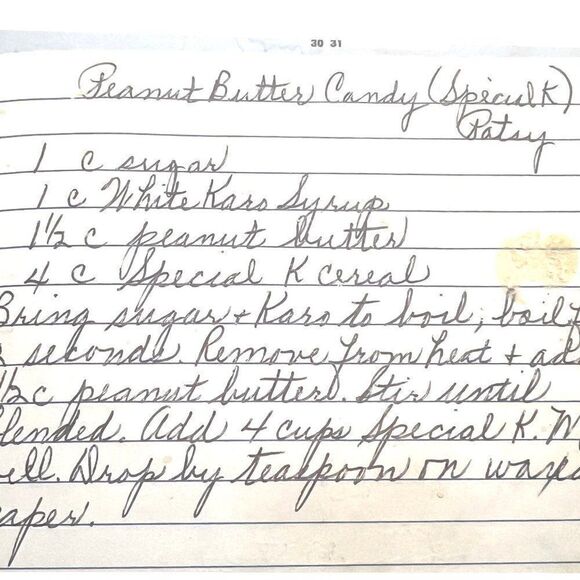 30 31
Peanut Butter Candy (Special K)
Patsy
1 c sugar
1 c White Karo Syrup
1½ c peanut butter
4 c Special K cereal
Bring sugar + Karo to boil, boil
seconds. Remove from heat + ad
½ c peanut butter. Stir until
lended. Add 4 cups Special K. M
ell. Drop by teaspoon on waxe
aper.